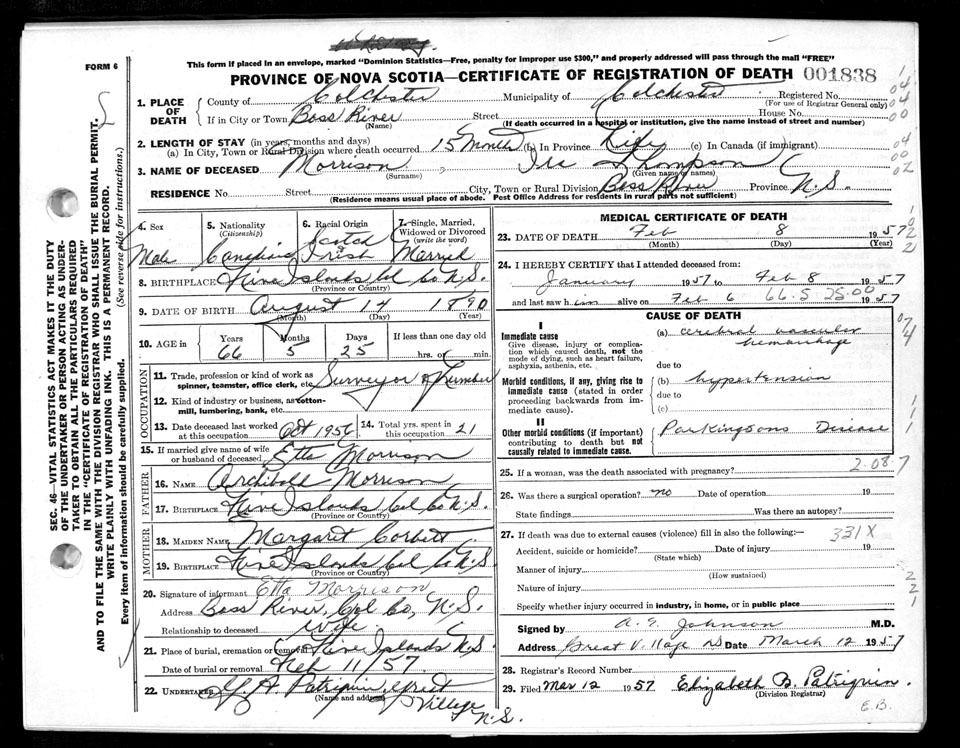 This form if placed in an envelope, marked "Dominion Statistics—Free, penalty for improper use $300," and properly addressed will pass through the mail "FREE"
FORM 6
PROVINCE OF NOVA SCOTIA—CERTIFICATE OF REGISTRATION OF DEATH 001838
1. PLACE OF DEATH County of Colchester Municipality of Colchester Registered No.
(For use of Registrar General only)
If in City or Town Bass River Street House No.
(Name) (If death occurred in a hospital or institution, give the name instead of street and number)
2. LENGTH OF STAY (in years, months and days)
(a) In City, Town or Rural Division where death occurred 15 Months (b) In Province Life (c) In Canada (if immigrant)
3. NAME OF DECEASED Morrison Ira Thompson
(Surname) (Given name or names)
RESIDENCE No. Street City, Town or Rural Division Bass River Province N.S.
(Residence means usual place of abode. Post Office Address for residents in rural parts not sufficient)
4. Sex 5. Nationality (Citizenship) 6. Racial Origin 7. Single, Married, Widowed or Divorced (write the word)
Male Canadian Scotch Irish Married
8. BIRTHPLACE Five Islands Col Co N.S.
(Province or Country)
9. DATE OF BIRTH August 14 1890
(Month) (Day) (Year)
10. AGE Years Months Days If less than one day old
66 5 25 hrs. or min.
OCCUPATION
11. Trade, profession or kind of work as spinner, teamster, office clerk, etc. Surveyor of Lumber
12. Kind of industry or business, as cotton-mill, lumbering, bank, etc.
13. Date deceased last worked at this occupation Oct 1956 14. Total yrs. spent in this occupation 21
15. If married give name of wife or husband of deceased Etta Morrison
FATHER
16. NAME Archibald Morrison
17. BIRTHPLACE Five Islands Col Co N.S.
(Province or Country)
MOTHER
18. MAIDEN NAME Margaret Corbett
19. BIRTHPLACE Five Islands Col Co N.S.
(Province or Country)
20. Signature of informant Etta Morrison
Address Bass River, Col Co, N.S.
Relationship to deceased wife
21. Place of burial, cremation or removal Five Islands N.S.
Date of burial or removal Feb 11/57
22. UNDERTAKER Y. A. Patriquin, Great Village N.S.
MEDICAL CERTIFICATE OF DEATH
23. DATE OF DEATH Feb 8 1957
(Month) (Day) (Year)
24. I HEREBY CERTIFY that I attended deceased from:
January 1957 to Feb 8 1957
and last saw him alive on Feb 6 66.5 25.00 1957
CAUSE OF DEATH
I
Immediate cause
Give disease, injury or complication which caused death, not the mode of dying, such as heart failure, asphyxia, asthenia, etc.
(a) cerebral vascular hemorrhage
due to
Morbid conditions, if any, giving rise to immediate cause (stated in order proceeding backwards from immediate cause).
(b) hypertension
due to
(c)
II
Other morbid conditions (if important) contributing to death but not causally related to immediate cause.
Parkingsons Disease
25. If a woman, was the death associated with pregnancy? 2.087
26. Was there a surgical operation? no Date of operation 19
State findings Was there an autopsy?
27. If death was due to external causes (violence) fill in also the following:— 331X
Accident, suicide or homicide? Date of injury 19
(State which)
Manner of injury
(How sustained)
Nature of injury
Specify whether injury occurred in industry, in home, or in public place
Signed by A. E. Johnson M.D.
Address Great Village NS Date March 12 1957
28. Registrar's Record Number
29. Filed Mar 12 1957 Elizabeth B. Patriquin.
(Division Registrar)
E.B.
SEC. 46—VITAL STATISTICS ACT MAKES IT THE DUTY
OF THE UNDERTAKER OR PERSON ACTING AS UNDER-
TAKER TO OBTAIN ALL THE PARTICULARS REQUIRED
IN THE "CERTIFICATE OF REGISTRATION OF DEATH"
AND TO FILE THE SAME WITH THE DIVISION REGISTRAR WHO SHALL ISSUE THE BURIAL PERMIT.
WRITE PLAINLY WITH UNFADING INK. THIS IS A PERMANENT RECORD.
Every item of information should be carefully supplied. (See reverse side for instructions.)